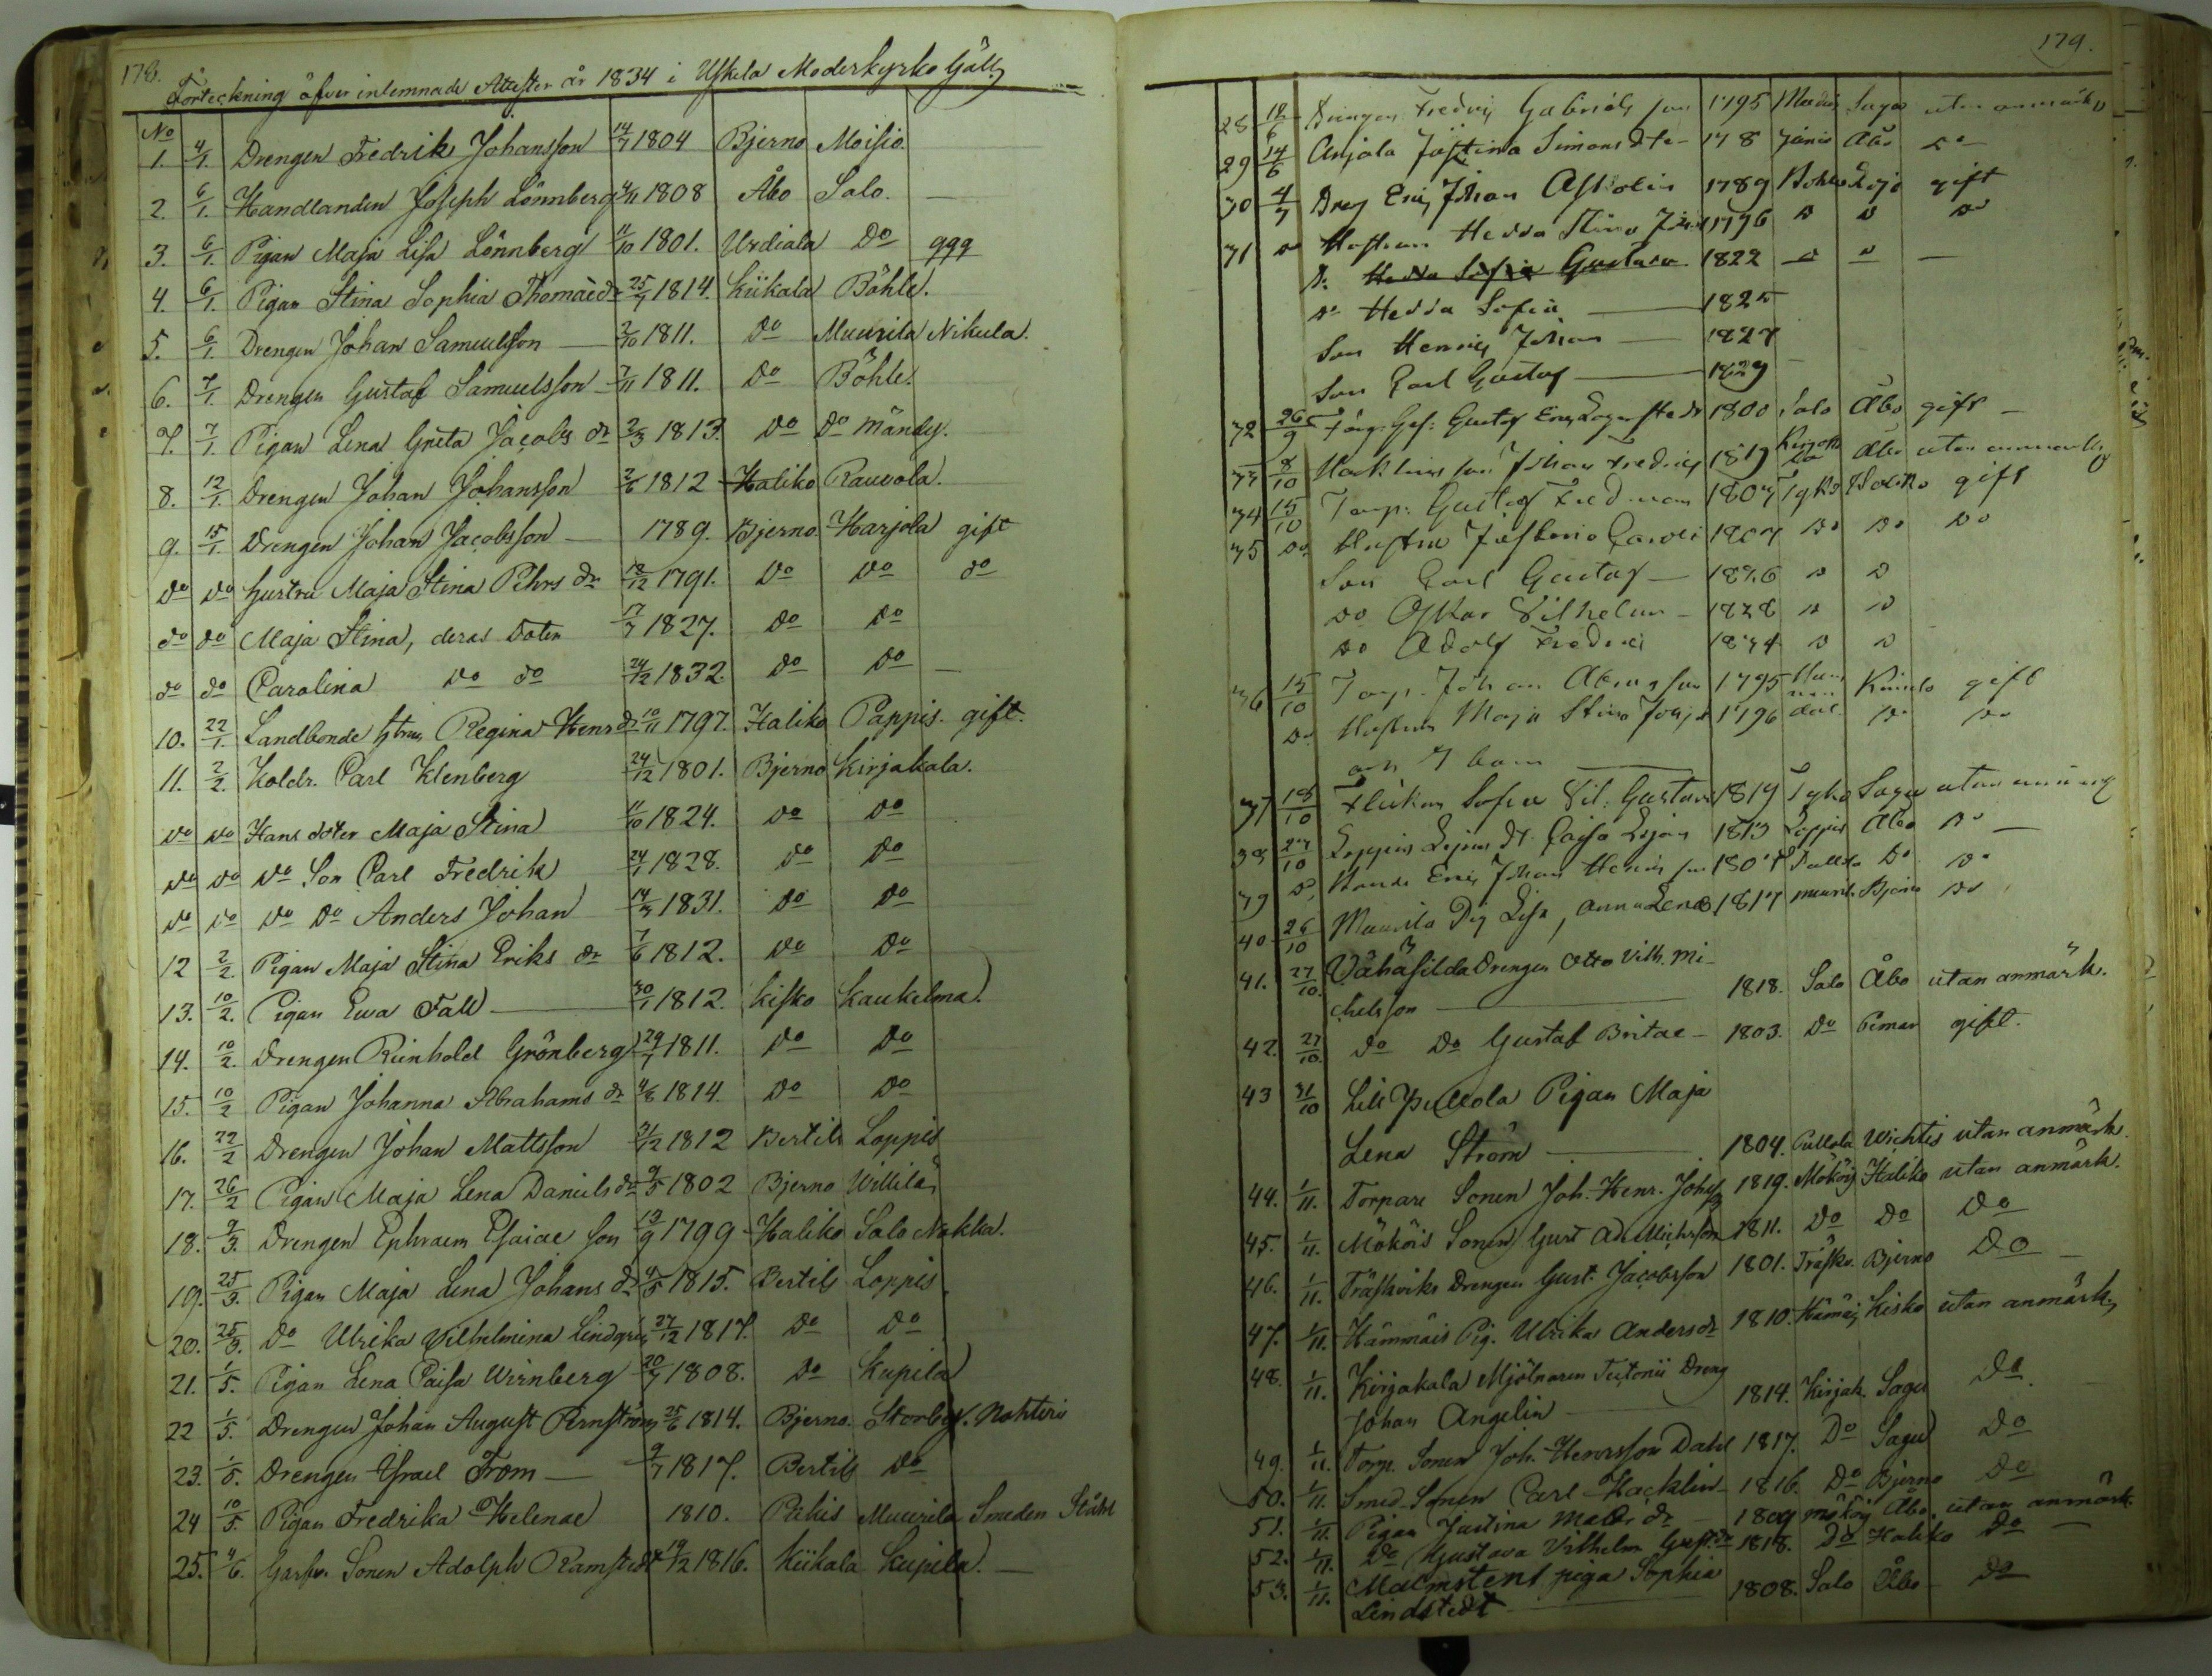 178.
Förteckning öfver inlemnade Attester år 1834 i Uskela Moderkyrko Gäll
No
1. 4/1. Drengen Fredrik Johansson 14/7 1804 Bjerno Moisio.
2. 6/1. Handlanden Joseph Lönnberg 4/11 1808 Åbo Salo. —
3. 6/1. Pigan Maja Lisa Lönnberg 11/10 1801. Urdiala Do 999
4. 6/1. Pigan Stina Sophia Thomae dr 25/7 1814. Kiikala Böhle.
5. 6/1. Drengen Johan Samuelsson — 2/10 1811. do Muurila Nikula.
6. 7/1. Drengen Gustaf Samuelsson — 7/11 1811. do Böhle.
7. 7/1. Pigan Lena Greta Jacobs dr 2/3 1813. do do Mändy.
8. 12/1. Drengen Johan Johansson 2/6 1812 Haliko Rauvola.
9. 15/1. Drengen Johan Jacobsson — 1789. Bjerno. Harjola gift
do do hustru Maja Stina Pehrs dr 18/12 1791. do do do
do do Maja Stina, deras doter 17/7 1827. do do
do do Carolina do do 24/12 1832. do do —
10. 22/1. Landbonde Hstrun Regina Henr dr 10/11 1797. Haliko Pappis. gift.
11. 2/2. Koldr. Carl Klenberg 24/12 1801. Bjerno Kirjakala.
do do Hans doter Maja Stina 11/10 1824. do do
do do do Son Carl Fredrik 24/7 1828. do do
do do do do Anders Johan 14/3 1831. do do
12 2/2. Pigan Maja Stina Eriks dr 7/6 1812. do do
13. 10/2. Pigan Ewa Fall — 30/1 1812. Kisko Kaukelma.
14. 10/2. Drengen Reinhold Grönberg 29/7 1811. do do
15. 10/2 Pigan Johanna Abrahams dr 4/8 1814. do do
16. 22/2 Drengen Johan Mattsson 31/12 1812 Bertils Loppis
17. 26/2 Pigan Maja Lena Daniels dr 9/5 1802 Bjerno Willilä
18. 2/3. Drengen Ephraem Esaiae son 19/9 1799 Haliko Salo Nokka.
19. 25/3. Pigan Maja Lena Johans dr 4/5 1815. Bertils Loppis.
20. 25/3. do Ulrika Vilhelmina Lindgren 27/12 1817. do do
21. 1/5. Pigan Lena Caisa Wirnberg 20/7 1808. do Kupila
22 1/5. Drengen Johan August Pernström 25/6 1814. Bjerno. Storby. Nohteri
23. 1/5. Drengen Israel From — 9/7 1817. Bertils do
24 10/5. Pigan Fredrika Helenae 1810. Pakis Muurila Smeden Ståhl
25. 4/6. Garfv. Sonen Adolph Ramstedt 19/12 1816. Kiikala Kupila. —
179.
28 12/6 Drengen Fredrik Gabriels son 1795 Sagu utan anmärk
29 14/6 Anjala Justina Simons dtr — 178 Åbo do
30 4/7 Dreng Eric Johan Asholin 1789 gift
31 do Hustrun Hedda Stina 1796 do do do
D. Hedda Sofia Gustava 1822 do do —
do Hedda Sofia — 1825
Son Henric Johan — 1827
Son Carl Gustaf — 1829
32 26/9 Färg. Ges: Gustaf Eric Lagerstedt 1800 Salo Åbo gift —
33 8/10 son Johan Fredric 1819 Åbo utan anmärk
34 15/10 Torp: Gustaf Fredman 1807 Tyko Haliko gift
35 do Hustru Justina Caroli 1807 do do do
Son Carl Gustaf — 1826 do do
do Oskar Vilhelm — 1828 do do
do Adolf Fredric 1834 do do
36 15/10 Torp. Johan Abrams son 1795 Kiikala gift
do Hustrun Maja Stina 1796 do do
och 7 barn
37 18/10 Flickan Sofia Vil: Gustava 1819 Tyko Sagu utan anmärk
38 27/10 Loppis Caisa 1813 Loppis Åbo do —
39 do Eric Johan Henrics son 1807 Pullola do do
40 26/10 Muurila Pig Lisa, Anna Lena 1817 muuril. Bjerno do
41. 27/10. Vähäsilda Drengen Otto Vilh. Mi-
chelsson — 1818. Salo Åbo utan anmärk.
42. 27/10. do do Gustaf Britae — 1803. do Pemar gift.
43 31/10 Lill Pullola Pigan Maja
Lena Ström — 1804. Pullola Wichtis utan anmärk.
44. 1/11. Torpare Sonen Joh. Henr. Johss 1819. Mököis Haliko utan anmärk.
45. 1/11. Mököis Sonen Gust Ad. Michelsson 1811. do do do
46. 1/11. Träskviks Drengen Gust. Jacobsson 1801. Träskv. Bjerno do —
47. 1/11. Hämmäis Pig. Ulrika Anders dr 1810. Hämäis Kisko utan anmärk.
48. 1/11. Kirjakala Mjölnaren Teitonii Dreng
Johan Angelin — 1814. Kirjak. Sagu do —
49. 1/11. Torp. Sonen Joh. Henrsson Dahl 1817. do Sagu do
50. 1/11. Smed-Sonen Carl Hacklin — 1816. do Bjerno do
51. 1/11. Pigan Justina Matts dr — 1809 mököis Åbo. utan anmärk.
52. 1/11. do Gustava Vilhelm. Gust. dr 1818. do Haliko do —
53. 1/11. Malmstens piga Sophia
Lindstedt — 1808. Salo Åbo do